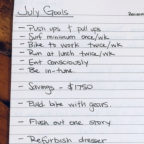 July Goals
- Push ups & pull ups
- Surf minimum once/wk
- Bike to work twice/wk
- Run at lunch twice/wk
- Eat consciously
- Be in-tune
- Savings - $1750
- Build bike with gears.
- Flush out one story
- Refurbish dresser